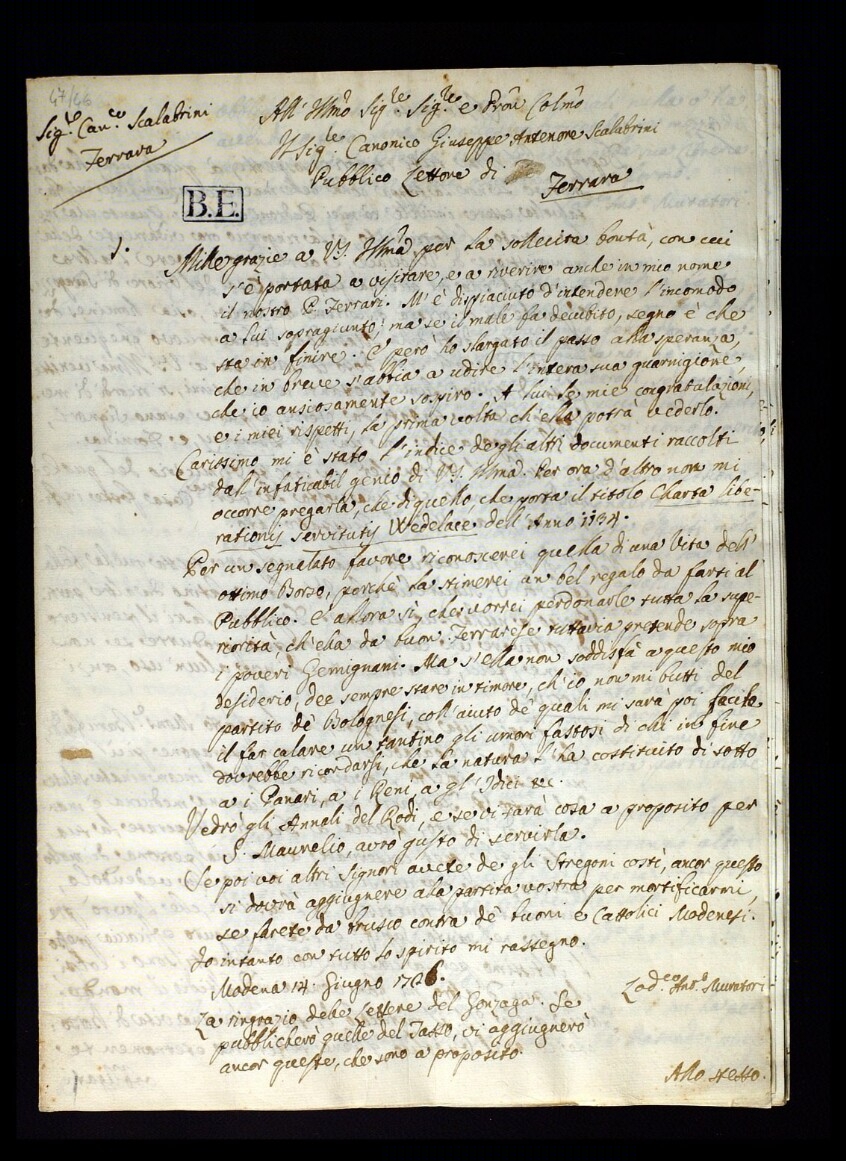 47/46
Sig.re Can.co Scalabrini
Ferrara
All' Illmo Sig.re Sig.re e Prōn Colmo
Il Sig.re Canonico Giuseppe Antenore Scalabrini
Pubblico Lettore di
Ferrara
B.E.
1.
Mille grazie a V.S. Illma per la sollecita bontà, con cui
s'è portata a visitare, e a riverire anche in mio nome
il nostro P. Ferrari. M'è dispiaciuto d'intendere l'incomodo
a lui sopragiunto; ma se il male fa decubito, segno è che
sta in finire. E però ho slargato il passo alla speranza,
che in breve s'abbia a udire l'intera sua guarnigione,
che io ansiosamente sospiro. A lui le mie congratulazioni,
e i miei rispetti, la prima volta ch'ella potrà vederlo.
Carissimo mi è stato l'indice degli altri documenti raccolti
dall'infaticabil genio di V.S. Illma. Per ora d'altro non mi
occorre pregarla, che di quello, che porta il titolo Charta libe-
rationis servitutis Wedelace dell'Anno 1134.
Per un segnalato favore riconoscerei quella di una Vita dell'
ottimo Borso, perchè la stimerei un bel regalo da farsi al
Pubblico. E allora sì, che vorrei perdonarle tutta la supe-
riorità, ch'ella da buon Ferrarese tuttavia pretende sopra
i poveri Gemignani. Ma s'ella non soddisfà a questo mio
desiderio, dee sempre stare in timore, ch'io non mi butti del
partito de' Bolognesi, coll'aiuto de' quali mi sarà poi facile
il far calare un tantino gli umori fastosi di chi in fine
dovrebbe ricordarsi, che la natura l'ha costituito di sotto
a i Panari, a i Reni, a gl'Idici &c.
Vedrò gli Annali del Rodi, e se vi sarà cosa a proposito per
S. Maurelio, avrò gusto di servirla.
Se poi voi altri Signori avete de gli Stregoni costì, ancor questo
si dovrà aggiugnere alla partita vostra per mortificarmi,
se farete da brusco contra de' buoni e Cattolici Modenesi.
Io intanto con tutto lo spirito mi rassegno.
Modena 14. Giugno 1726.
Lod.co Ant.o Muratori
La ringrazio delle Lettere del Gonzaga. Se
pubblicherò quelle del Tasso, vi aggiugnerò
ancor queste, che sono a proposito.
Allo stesso.